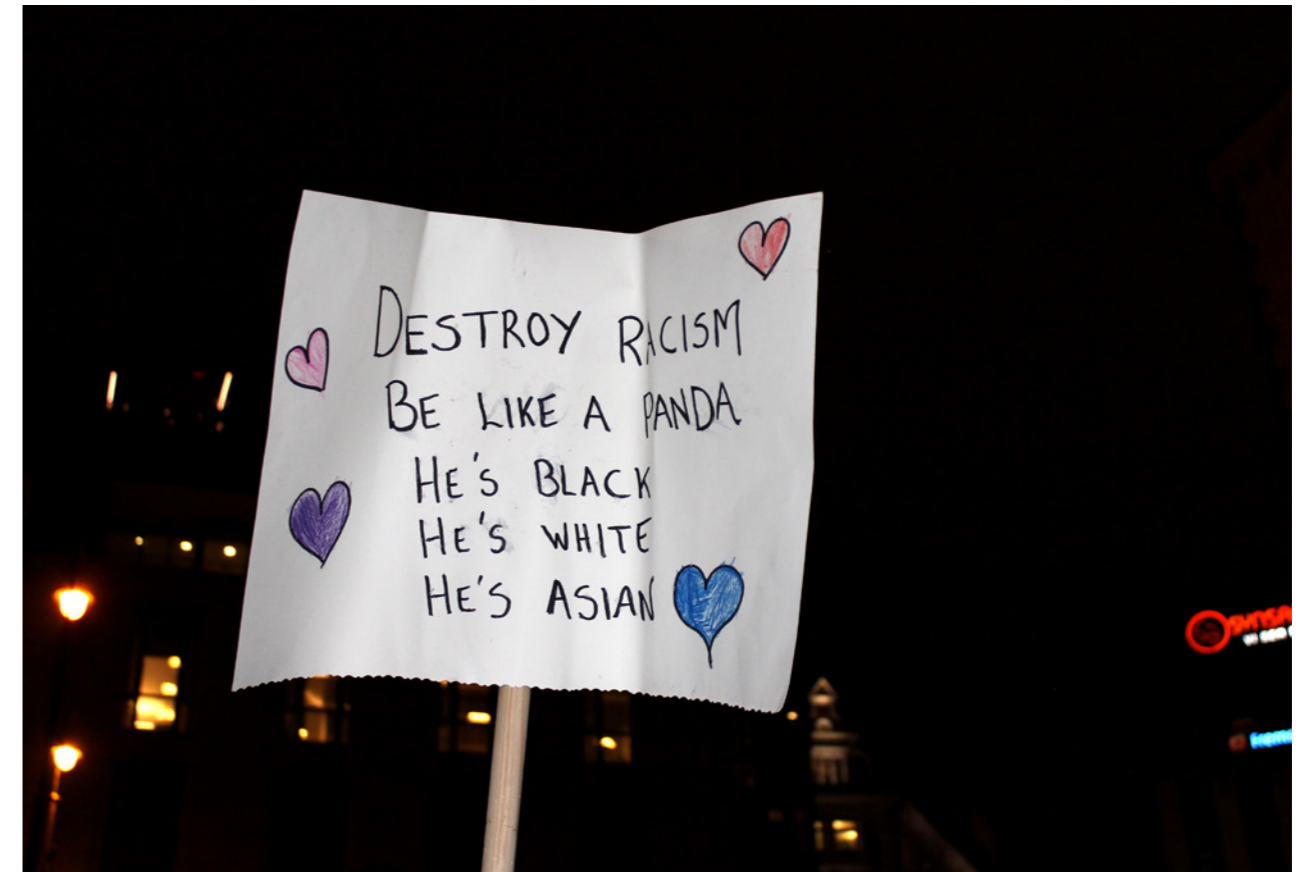 DESTROY RACISM
BE LIKE A PANDA
HE'S BLACK
HE'S WHITE
HE'S ASIAN